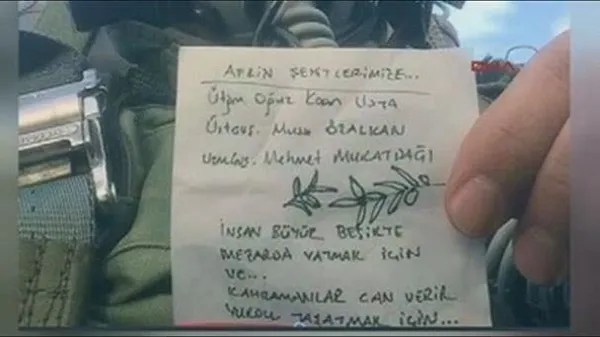 AFRİN ŞEHİTLERİMİZE...
Ütğm Oğuz Kaan Usta
Üstçvş. Musa ÖZALKAN
Uzmçvş. Mehmet MURATDAĞI
İNSAN BÜYÜR BEŞİKTE
MEZARDA YATMAK İÇİN
VE...
KAHRAMANLAR CAN VERİR
YURDU YAŞATMAK İÇİN...